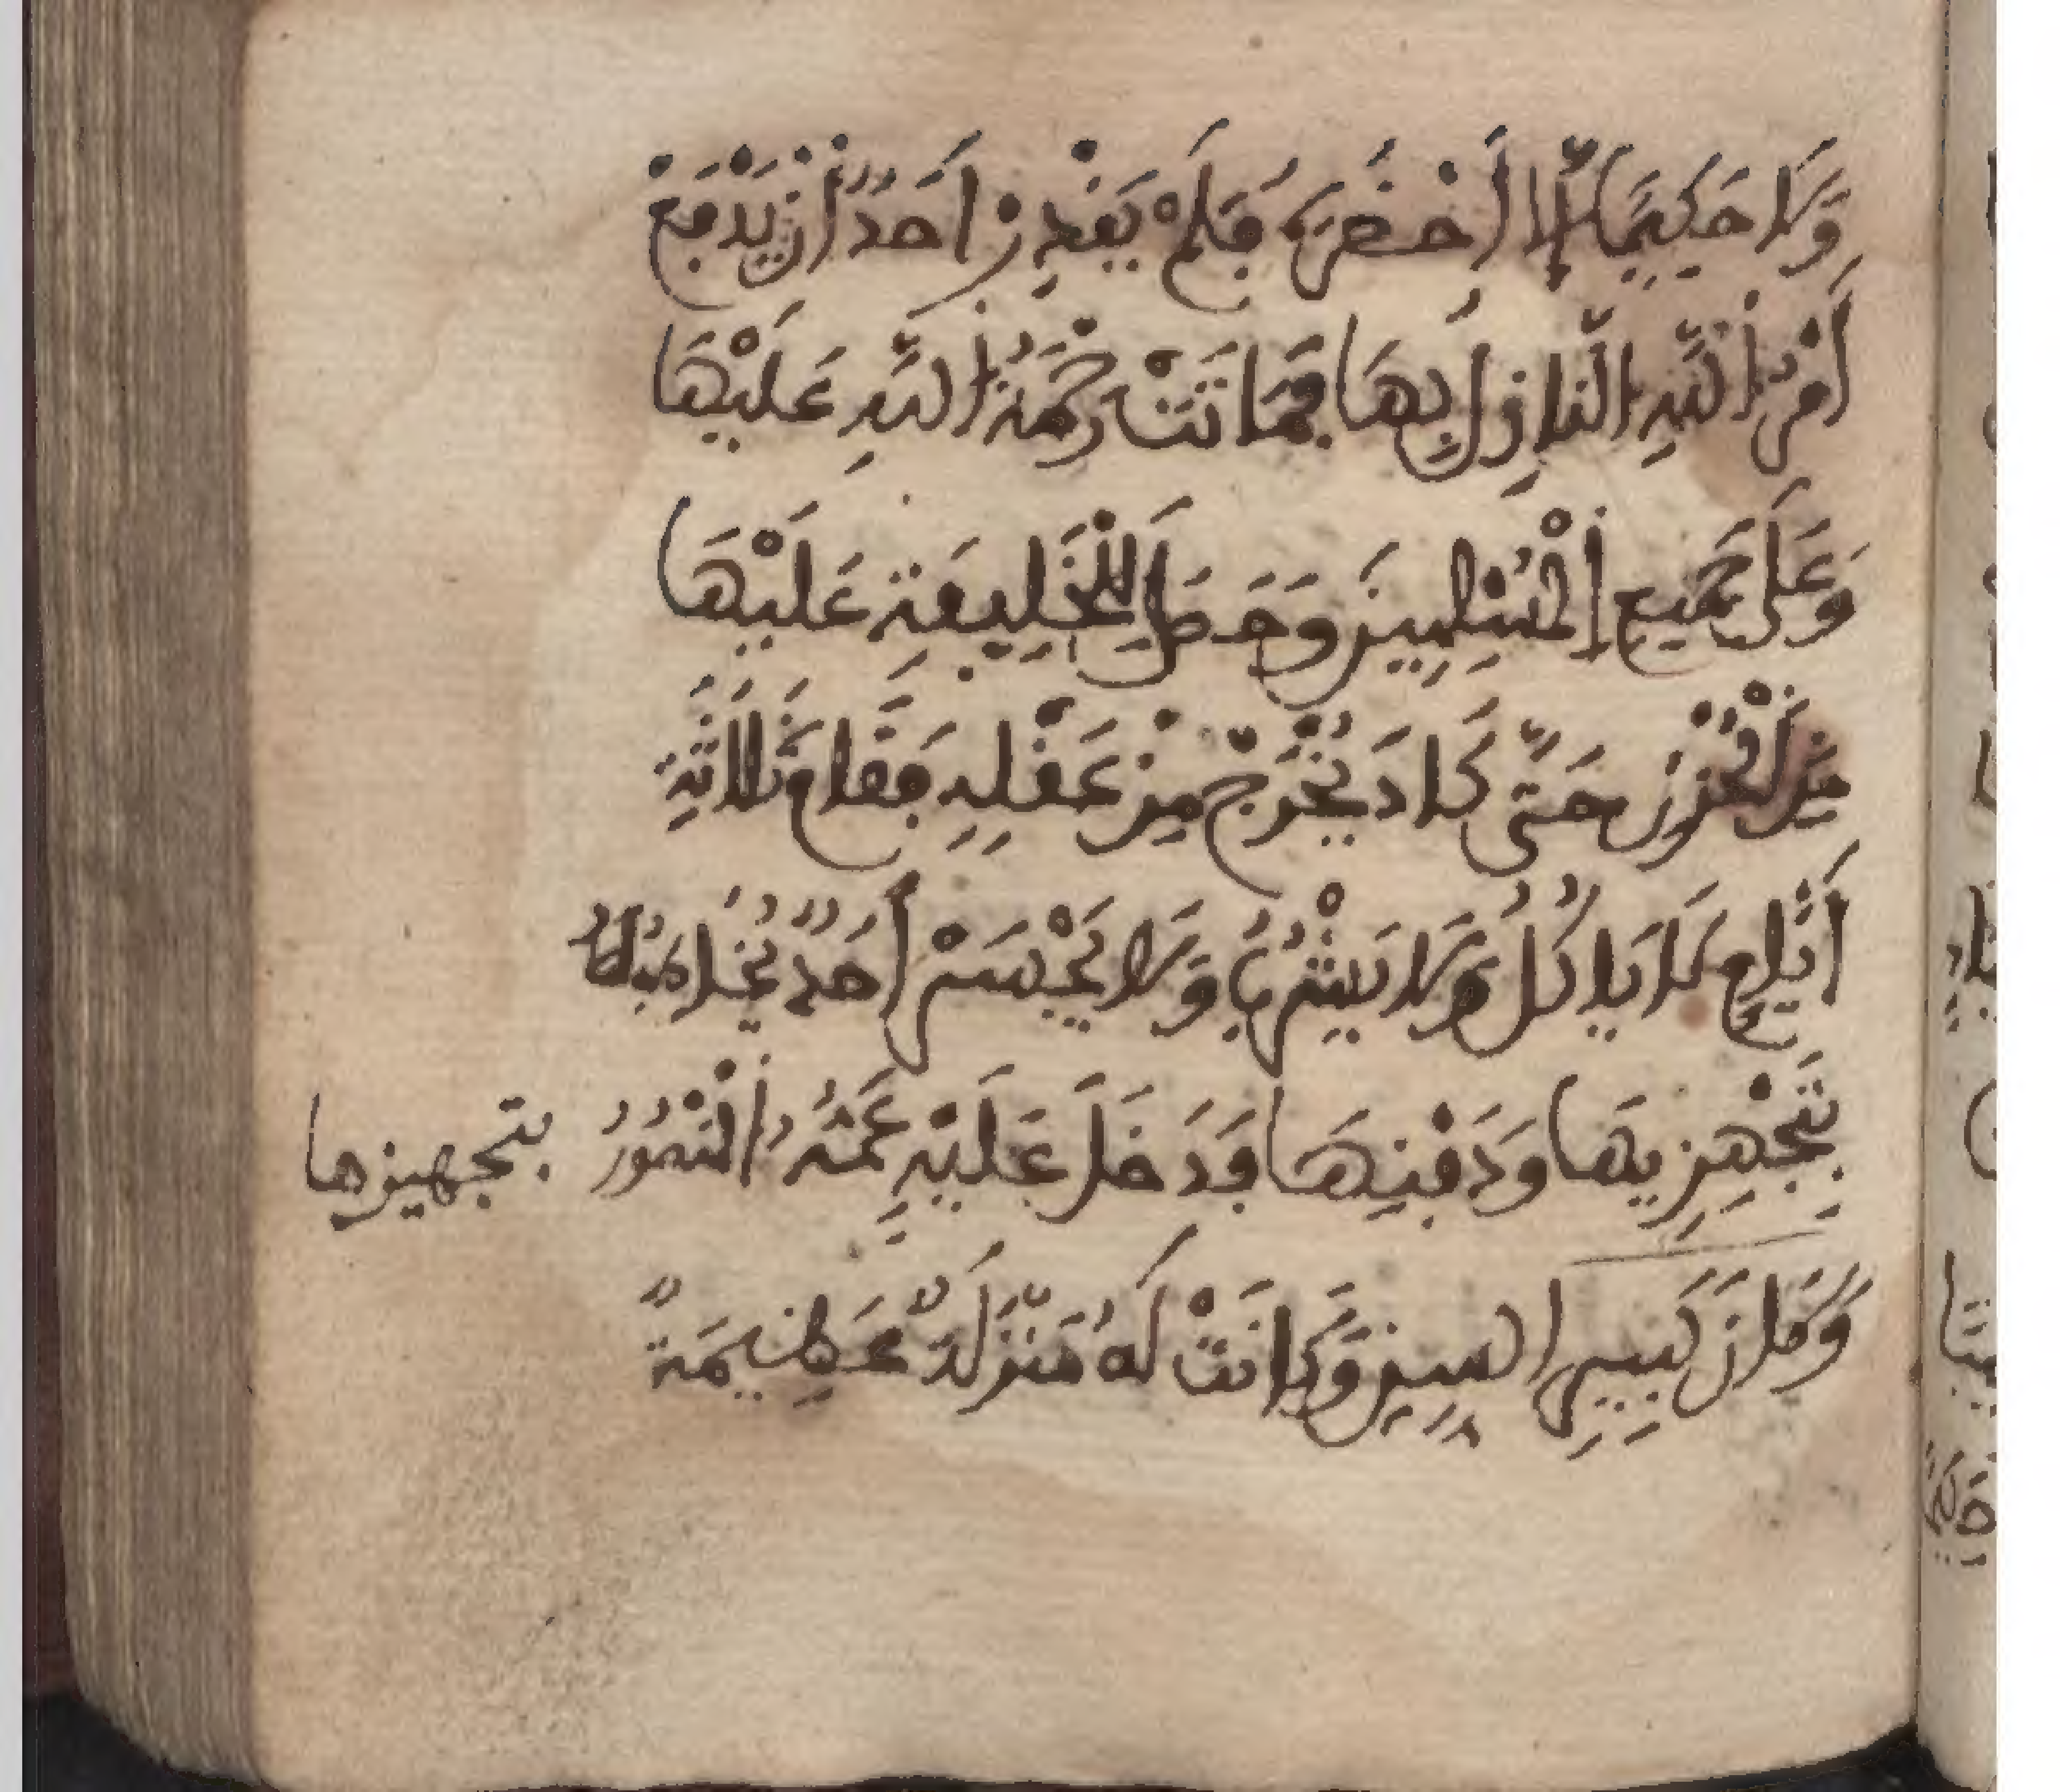 وَلَا حَكِيمًا إِلَّا أَحْضَرَهُ فَلَمْ يَقْدِرْ أَحَدٌ أَنْ يَدْفَعَ
أَمْرَ اللَّهِ النَّازِلَ بِهَا فَمَاتَتْ رَحْمَةُ اللَّهِ عَلَيْهَا
وَعَلَى جَمِيعِ الْمُسْلِمِينَ وَحَصَلَ لِلْخَلِيفَةِ عَلَيْهَا
مِنَ الْحُزْنِ حَتَّى كَادَ يَخْرُجُ مِنْ عَقْلِهِ فَقَامَ ثَلَاثَةَ
أَيَّامٍ لَا يَاكُلُ وَلَا يَشْرَبُ وَلَا يَجْسَرْ أَحَدٌ يُخَاطِبُهُ
بِتَجْهِزِيهَا وَدَفْنِهَا فَدَخَلَ عَلَيْهِ عَمُّهُ الْمَنْصُورُ بتجهيزها
وَكَانَ كَبِيرِ السِّنِّ وَكَانَتْ لَهُ مَنْزِلَةٌ عَظِيمَةٌ